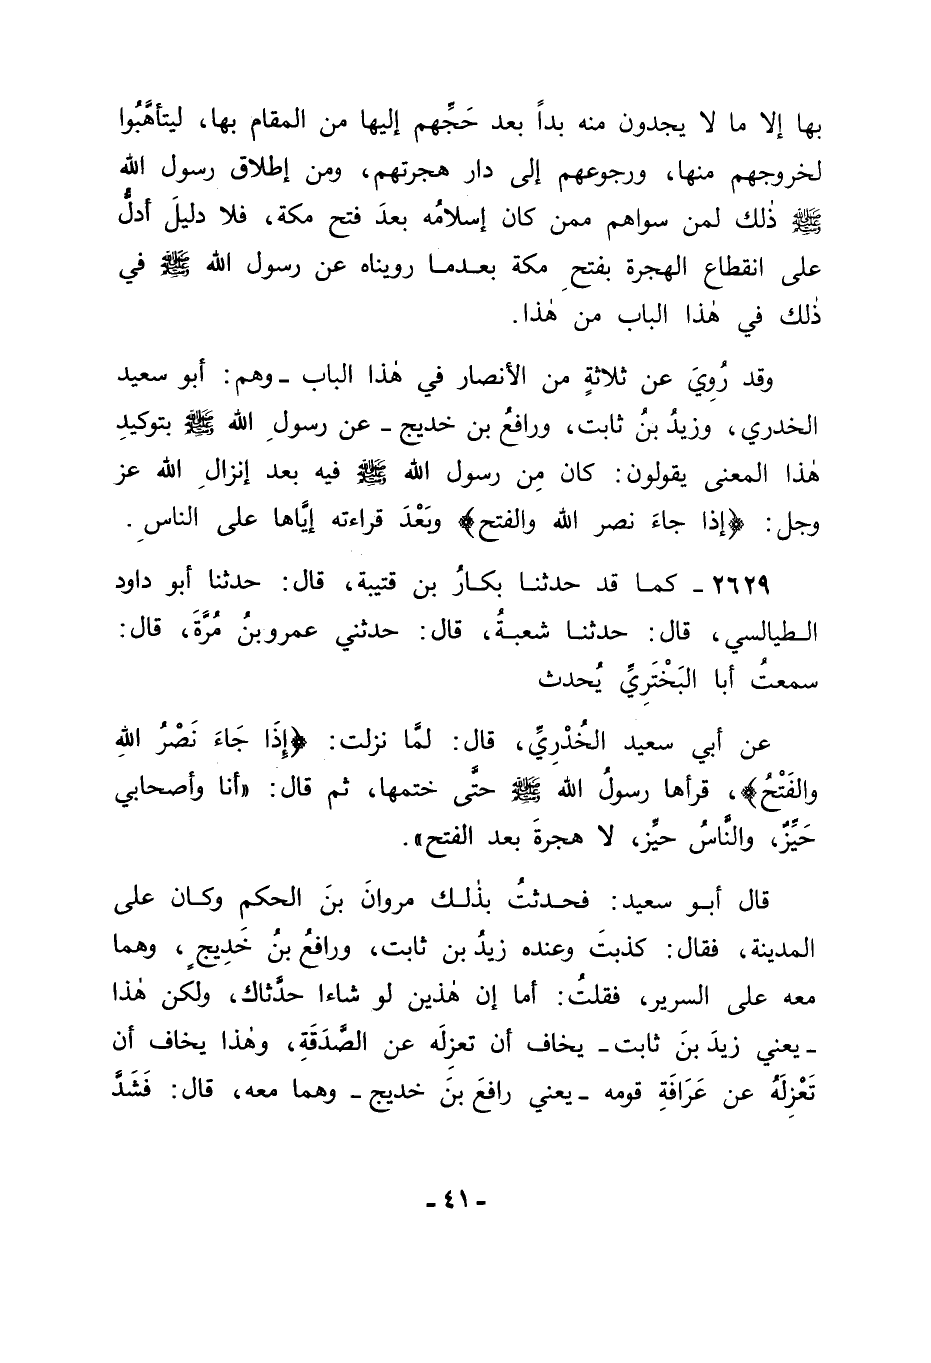 بها إلا ما لا يجدون منه بداً بعد حَجِّهم إليها من المقام بها، ليتأهَّبُوا
لخروجهم منها، ورجوعهم إلى دار هجرتهم، ومن إطلاق رسول الله
ﷺ ذٰلك لمن سواهم ممن كان إسلامُه بعدَ فتح مكة، فلا دليلَ أدلُّ
على انقطاع الهجرة بفتحِ مكة بعدما رويناه عن رسول الله ﷺ في
ذٰلك في هٰذا الباب من هٰذا.
وقد رُوِيَ عن ثلاثةٍ من الأنصار في هٰذا الباب ـ وهم: أبو سعيد
الخدري، وزيدُ بنُ ثابت، ورافعُ بن خديج ـ عن رسولِ الله ﷺ بتوكيدِ
هٰذا المعنى يقولون: كان مِن رسول الله ﷺ فيه بعد إنزالِ الله عز
وجل: ﴿إذا جاءَ نصر الله والفتح﴾ وبَعْدَ قراءته إيَّاها على الناسِ.
٢٦٢٩ ـ كما قد حدثنا بكارُ بن قتيبة، قال: حدثنا أبو داود
الطيالسي، قال: حدثنا شعبةُ، قال: حدثني عمرو بنُ مُرَّةَ، قال:
سمعتُ أبا البَخْتَرِيِّ يُحدث
عن أبي سعيد الخُدْرِيِّ، قال: لمَّا نزلت: ﴿إِذَا جَاءَ نَصْرُ اللهِ
والفَتْحُ﴾، قرأها رسولُ الله ﷺ حتَّى ختمها، ثم قال: «أنا وأصحابي
حَيِّزٌ، والنَّاسُ حيِّز، لا هجرةَ بعد الفتح».
قال أبو سعيد: فحدثتُ بذٰلك مروانَ بنَ الحكم وكان على
المدينة، فقال: كذبتَ وعنده زيدُ بن ثابت، ورافعُ بنُ خَدِيجٍ، وهما
معه على السرير، فقلتُ: أما إن هٰذين لو شاءا حدَّثاك، ولكن هٰذا
ـ يعني زيدَ بنَ ثابت ـ يخاف أن تعزِلَه عن الصَّدَقَةِ، وهٰذا يخاف أن
تَعْزِلَهُ عن عَرَافَةِ قومه ـ يعني رافعَ بنَ خديج ـ وهما معه، قال: فَشَدَّ
ـ ٤١ ـ